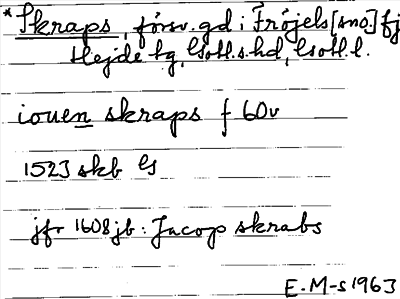 *Skraps, försv. gd i Fröjels [sn o.] fj
Hejde tg, Gotl. s. hd, Gotl. l.
iouen skraps f 60v
1523 skb G
jfr 1608 jb: Jacop skrabs
E. M-s 1963